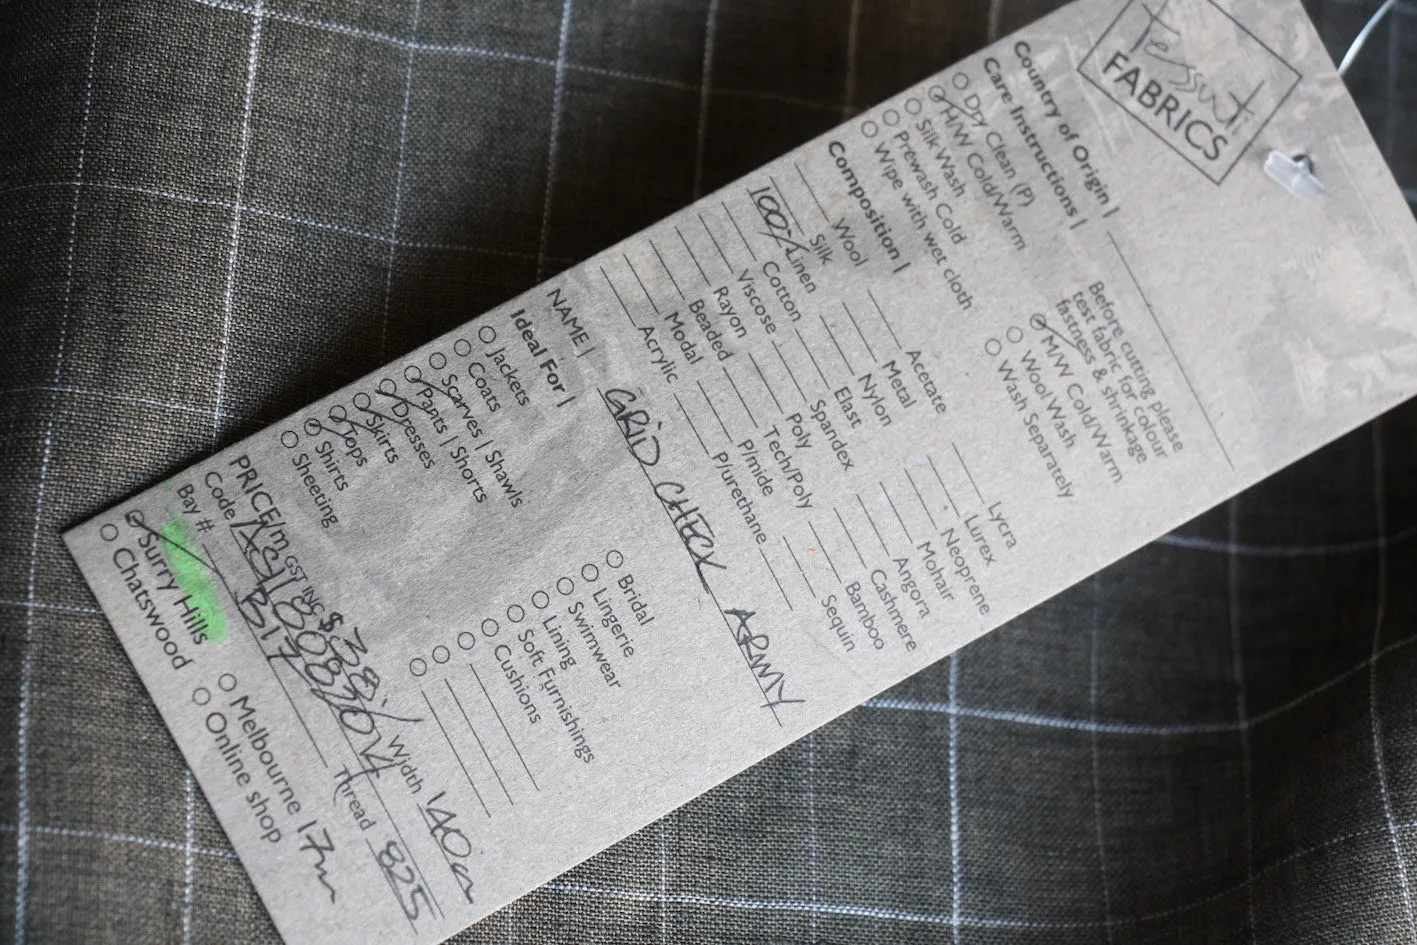 tessuti
FABRICS
Country of Origin |
Care Instructions |
Dry Clean (P)
H/W Cold/Warm
Silk Wash
Prewash Cold
Wipe with wet cloth
Before cutting please
test fabric for colour
fastness & shrinkage
M/W Cold/Warm
Wool Wash
Wash Separately
Composition |
Wool
Silk
100% Linen
Cotton
Viscose
Rayon
Beaded
Modal
Acrylic
Acetate
Metal
Nylon
Elast
Spandex
Poly
Tech/Poly
P/mide
P/urethane
Lycra
Lurex
Neoprene
Mohair
Angora
Cashmere
Bamboo
Sequin
NAME | GRID CHECK ARMY
Ideal For |
Jackets
Coats
Scarves | Shawls
Pants | Shorts
Dresses
Skirts
Tops
Shirts
Sheeting
Bridal
Lingerie
Swimwear
Lining
Soft Furnishings
Cushions
PRICE/m GST INC $ 38 Width 140cm
Code Thread 825
Bay # B17
Surry Hills
Chatswood
Melbourne 17m
Online shop